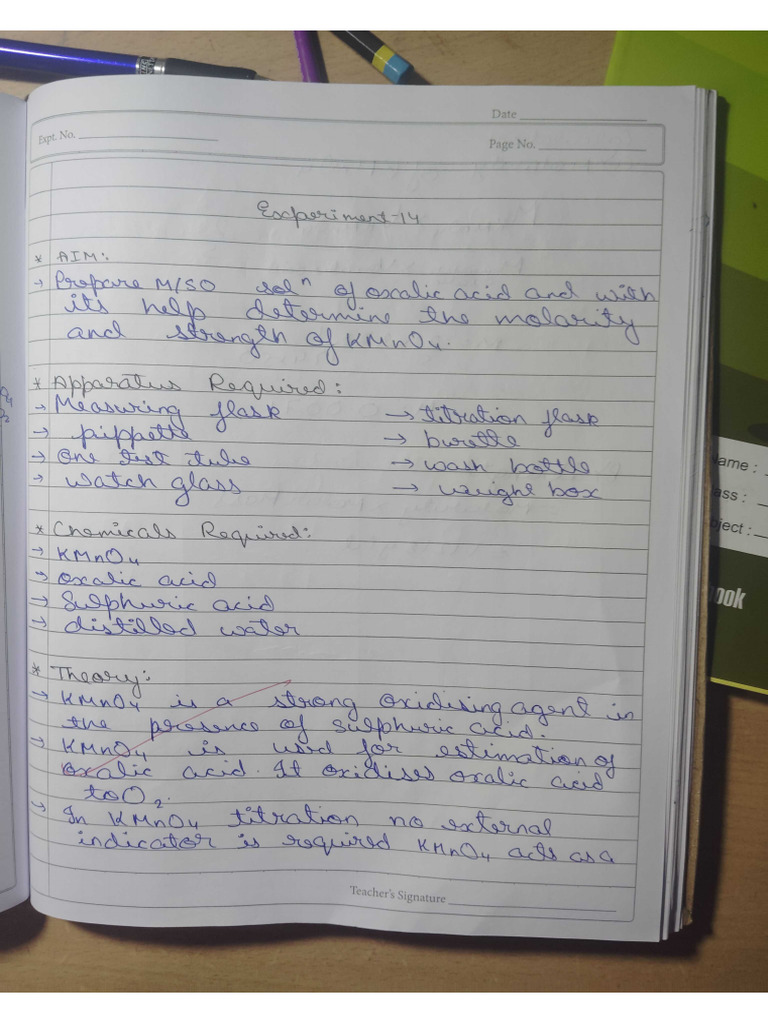 Date
Expt. No.
Page No.
Experiment-14
* AIM:
→ Prepare M/50 solⁿ of oxalic acid and with
its help determine the molarity
and strength of KMnO₄.
* Apparatus Required:
→ Measuring flask → titration flask
→ pippette → burette
→ One test tube → wash bottle
→ watch glass → weight box
* Chemicals Required:
→ KMnO₄
→ oxalic acid
→ Sulphuric acid
→ distilled water
* Theory:
→ KMnO₄ is a strong oxidising agent in
the presence of sulphuric acid.
→ KMnO₄ is used for estimation of
oxalic acid. It oxidises oxalic acid
to O₂.
→ In KMnO₄ titration no external
indicator is required KMnO₄ acts as a
Teacher's Signature
ame :
ass :
ject :
ook